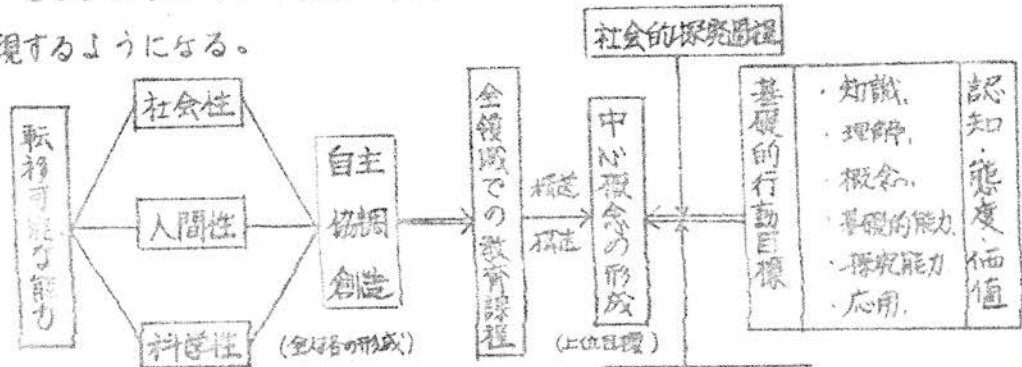 現するようになる。
社会的探究過程
転移可能な能力
社会性
人間性
科学性
自主
協調
創造
(全人格の形成)
全領域での教育課程
構造
構造
中心概念の形成
(上位目標)
基礎的行動目標
・知識、
・理解、
・概念、
・基礎的能力、
・探究能力
・応用、
認知・態度・価値